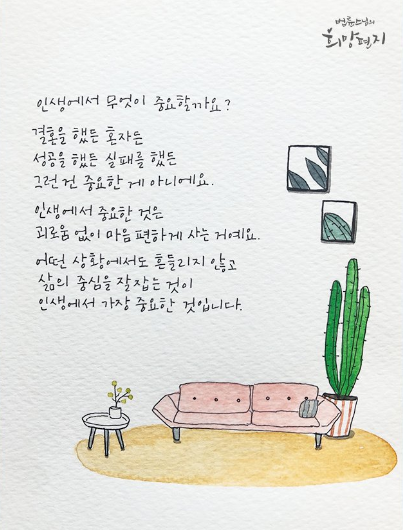 법륜스님의
희망편지
인생에서 무엇이 중요할까요?
결혼을 했든 혼자든
성공을 했든 실패를 했든
그런 건 중요한 게 아니에요.
인생에서 중요한 것은
괴로움 없이 마음 편하게 사는 거예요.
어떤 상황에서도 흔들리지 않고
삶의 중심을 잘 잡는 것이
인생에서 가장 중요한 것입니다.